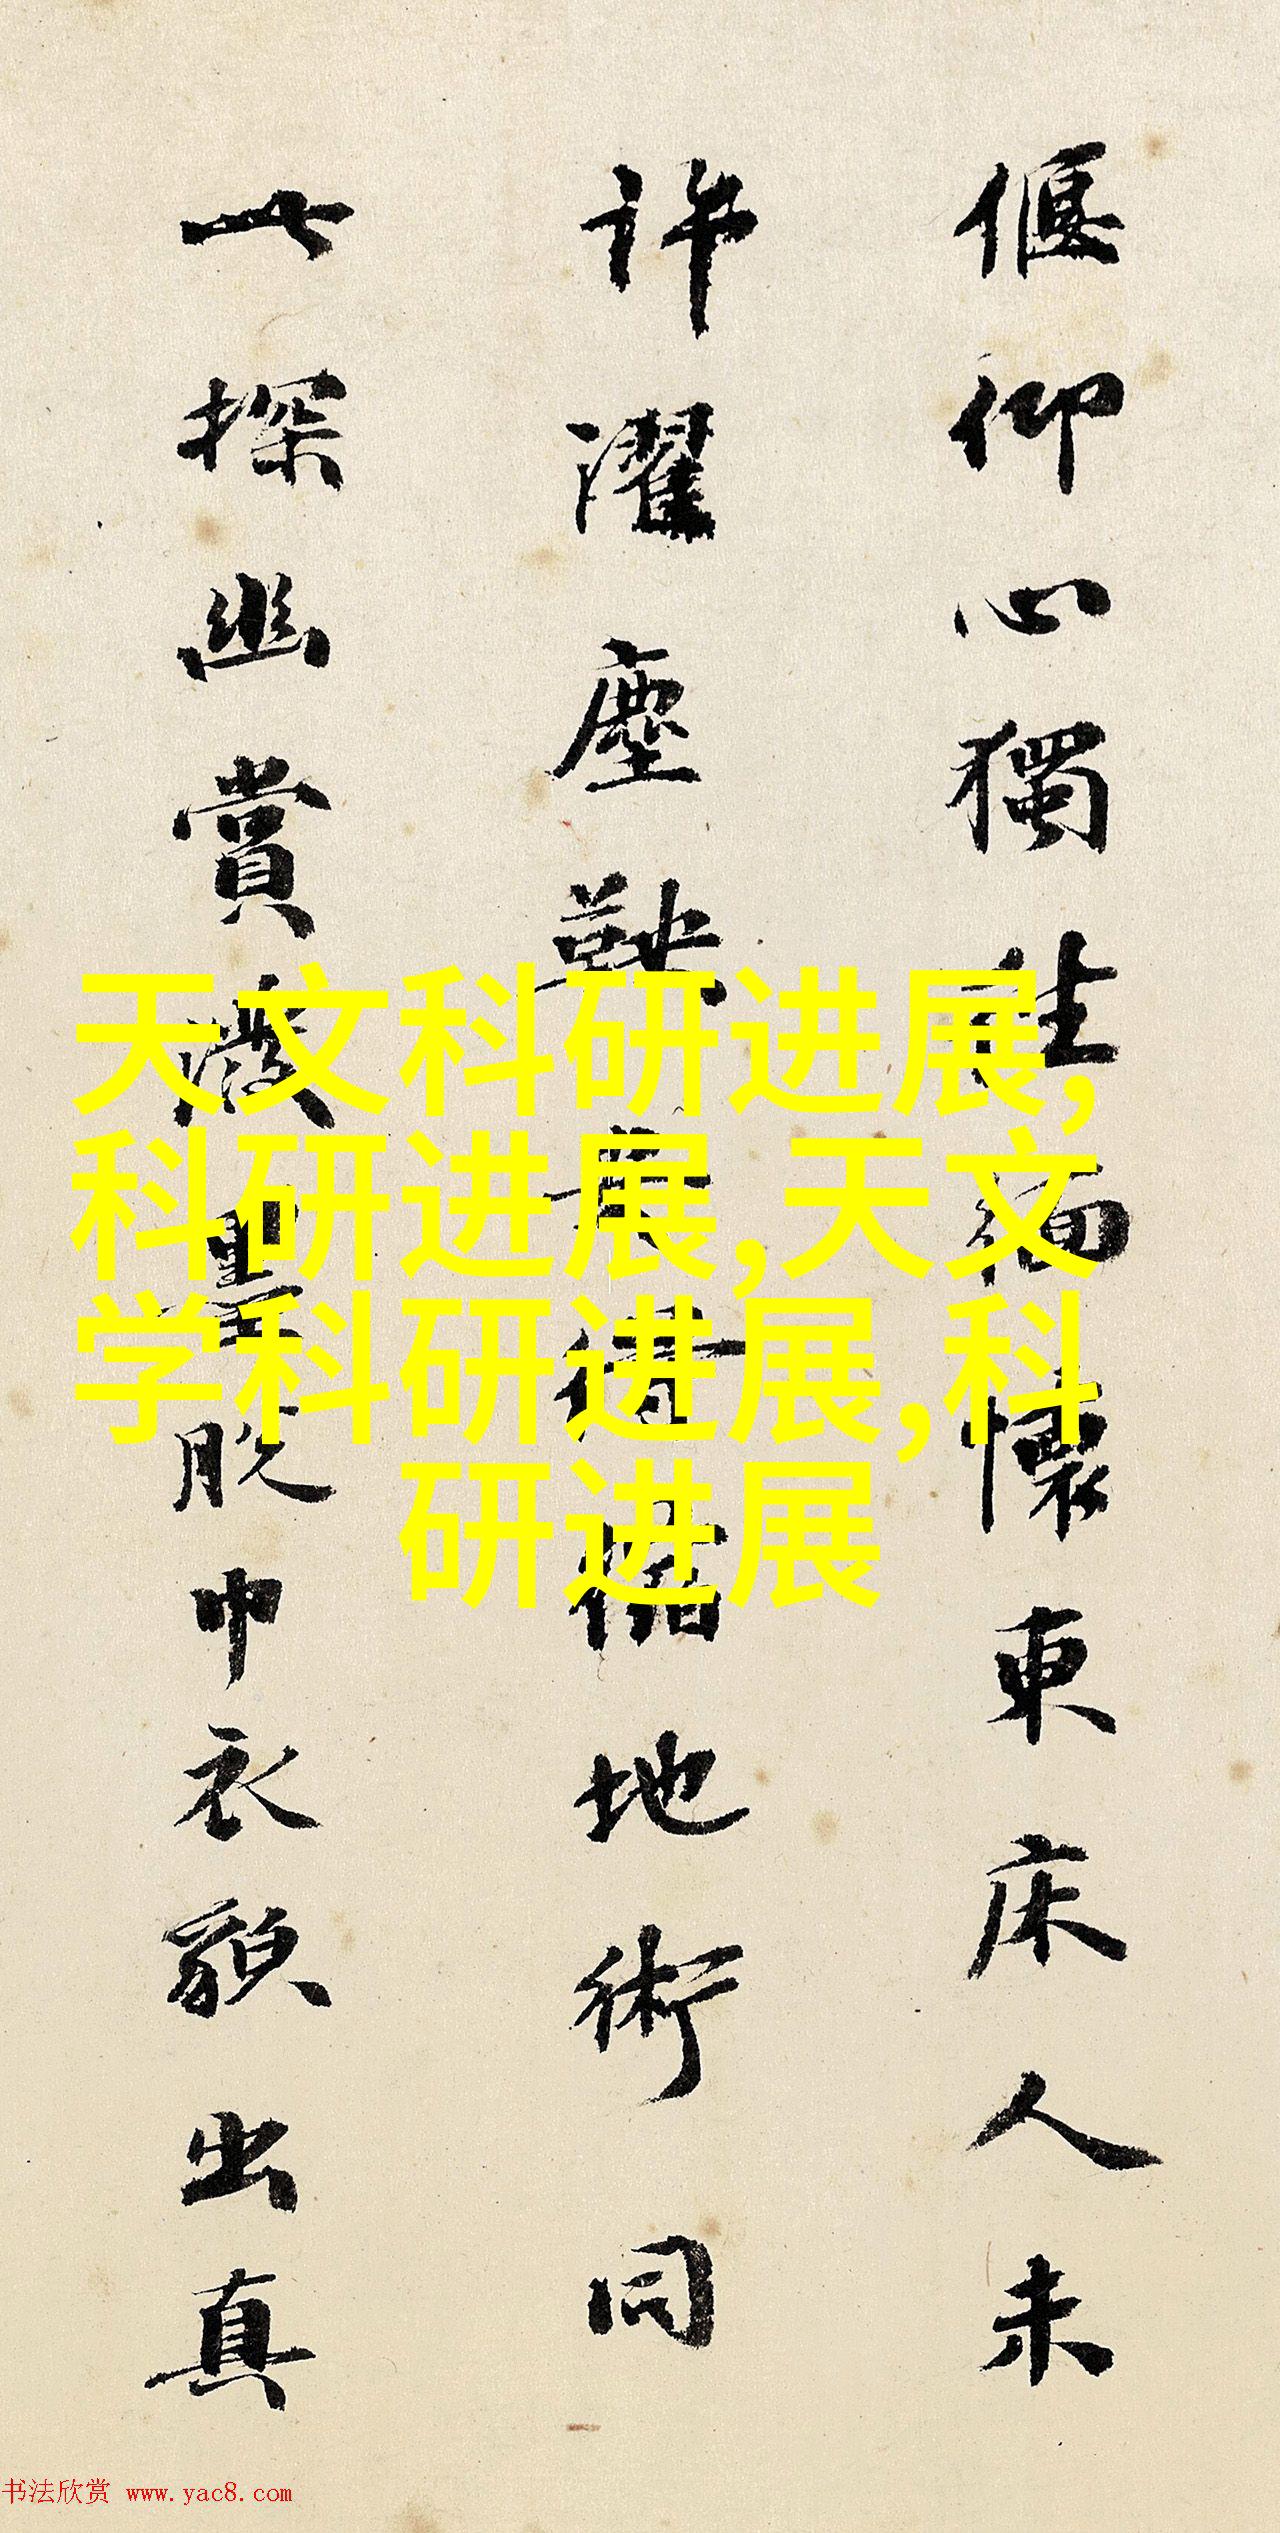 偃仰心獨往緬懷東床人未
許濯塵鞅 得 地術同
一探幽賞 聖脫巾衣貌出真
天文科研进展,
科研进展,天文
学科研进展,科
研进展
书法欣赏 www.yac8.com